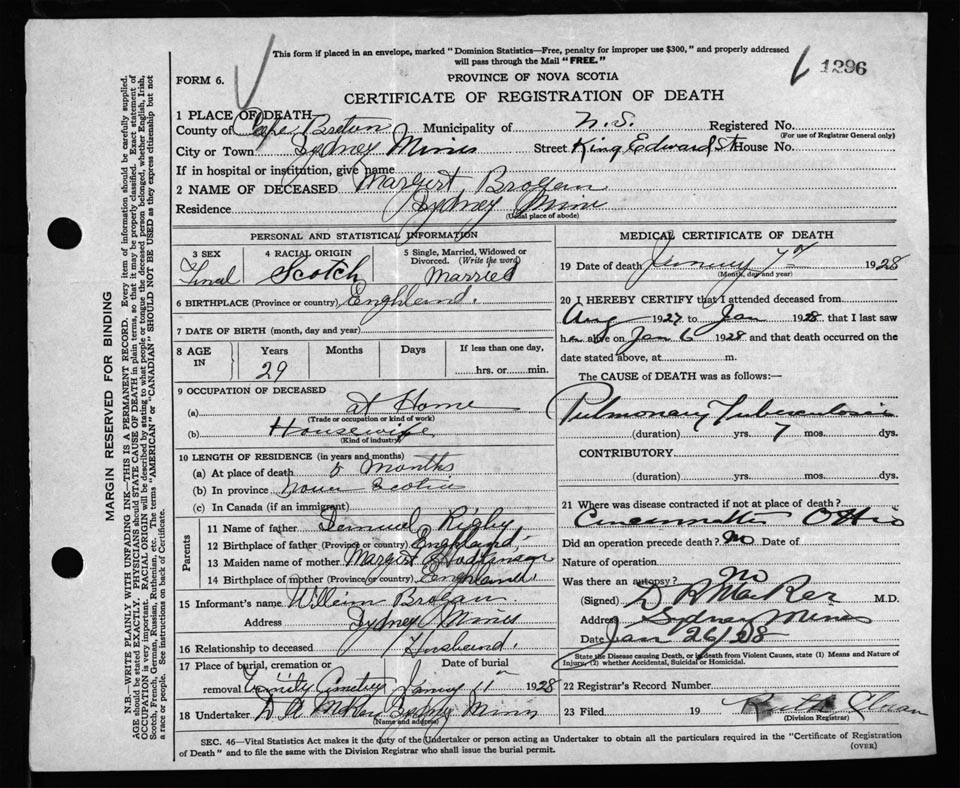 This form if placed in an envelope, marked "Dominion Statistics—Free, penalty for improper use $300," and properly addressed
will pass through the Mail "FREE."
FORM 6.
PROVINCE OF NOVA SCOTIA
1296
CERTIFICATE OF REGISTRATION OF DEATH
1 PLACE OF DEATH
County of Cape Breton Municipality of N.S. Registered No.
(For use of Registrar General only)
City or Town Sydney Mines Street King Edward St House No.
If in hospital or institution, give name
2 NAME OF DECEASED Margert Brogan
Residence Sydney Mine
(Usual place of abode)
PERSONAL AND STATISTICAL INFORMATION
3 SEX
4 RACIAL ORIGIN Scotch
5 Single, Married, Widowed or
Divorced. (Write the word)
Married
6 BIRTHPLACE (Province or country) Enghland.
7 DATE OF BIRTH (month, day and year)
8 AGE IN
Years Months Days If less than one day,
29 hrs. or min.
9 OCCUPATION OF DECEASED
(a) at Home
(Trade or occupation or kind of work)
(b) Housewife
(Kind of industry)
10 LENGTH OF RESIDENCE (in years and months)
(a) At place of death months
(b) In province Scotia
(c) In Canada (if an immigrant)
Parents
11 Name of father Rigby
12 Birthplace of father (Province or country) Enghland.
13 Maiden name of mother Margert Hodkinson
14 Birthplace of mother (Province or country) Enghland.
15 Informant's name Brogan
Address Sydney Mines
16 Relationship to deceased Husband.
17 Place of burial, cremation or Date of burial
removal Trinity Cemetery 11 1928
18 Undertaker Sydney Mines
(Name and address)
MEDICAL CERTIFICATE OF DEATH
19 Date of death 7th 1928
(Month, day and year)
20 I HEREBY CERTIFY that I attended deceased from
Aug 1927 to Jan 1928 that I last saw
her alive on Jan 6 1928 and that death occurred on the
date stated above, at m.
The CAUSE of DEATH was as follows:—
Pulmonary Tuberculosis
(duration) yrs. 7 mos. dys.
CONTRIBUTORY
(duration) yrs. mos. dys.
21 Where was disease contracted if not at place of death?
Ohio
Did an operation precede death? no Date of
Nature of operation
Was there an autopsy? no
(Signed) M.D.
Address Sydney Mines
Date Jan 26/28
State the Disease causing Death, or in death from Violent Causes, state (1) Means and Nature of
Injury, (2) whether Accidental, Suicidal or Homicidal.
22 Registrar's Record Number
23 Filed 19
(Division Registrar)
SEC. 46—Vital Statistics Act makes it the duty of the Undertaker or person acting as Undertaker to obtain all the particulars required in the "Certificate of Registration
of Death" and to file the same with the Division Registrar who shall issue the burial permit.
(OVER)
MARGIN RESERVED FOR BINDING
N.B.—WRITE PLAINLY WITH UNFADING INK—THIS IS A PERMANENT RECORD. Every item of information should be carefully supplied.
AGE should be stated EXACTLY. PHYSICIANS should STATE CAUSE OF DEATH in plain terms, so that it may be properly classified. Exact statement of
OCCUPATION is very important. RACIAL ORIGIN will be described by stating to what people or tongue the deceased person belonged, whether English, Irish,
Scotch, French, German, Russian, Ruthenian, etc. The terms "AMERICAN" or "CANADIAN" SHOULD NOT BE USED as they express citizenship but not
a race or people. See instructions on back of Certificate.